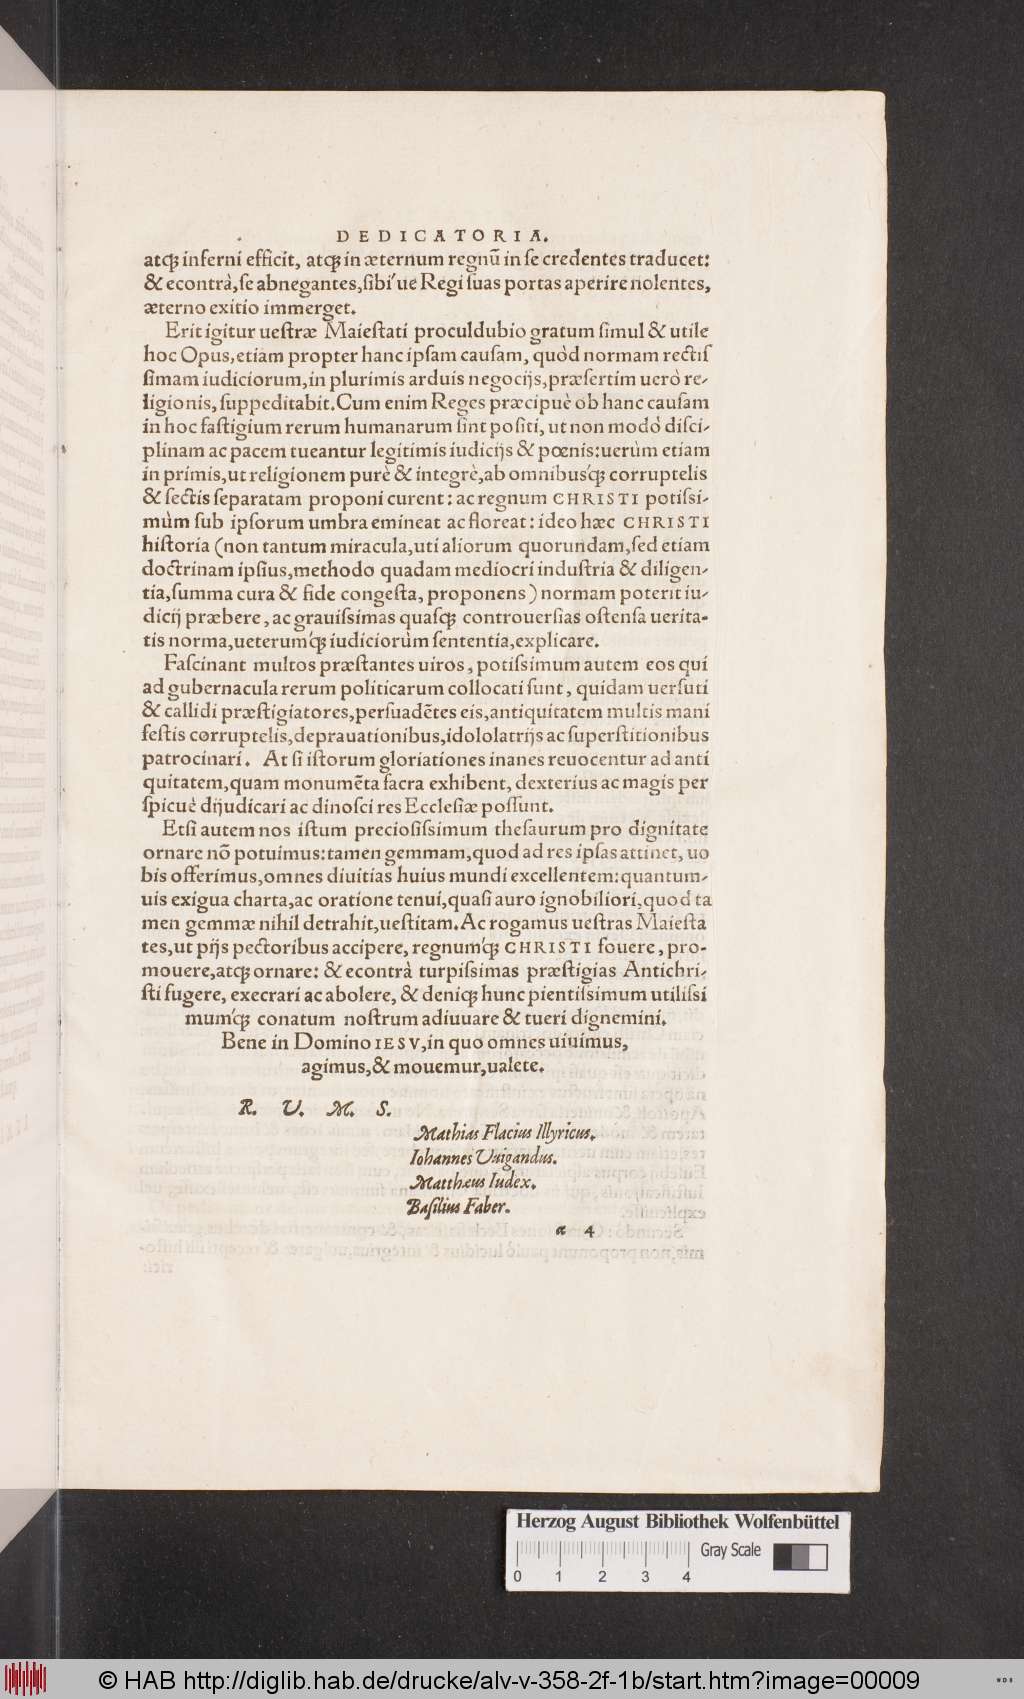 DEDICATORIA.
atq́; inferni efficit, atq́; in æternum regnũ in se credentes traducet:
& econtrà, se abnegantes, sibi'ue Regi suas portas aperire nolentes,
æterno exitio immerget.
Erit igitur uestræ Maiestati proculdubio gratum simul & utile
hoc Opus, etiam propter hanc ipsam causam, quòd normam rectis
simam iudiciorum, in plurimis arduis negocijs, præsertim uerò re-
ligionis, suppeditabit. Cum enim Reges præcipuè ob hanc causam
in hoc fastigium rerum humanarum sint positi, ut non modò disci-
plinam ac pacem tueantur legitimis iudicijs & pœnis: uerùm etiam
in primis, ut religionem purè & integrè, ab omnibusq́; corruptelis
& sectis separatam proponi curent: ac regnum CHRISTI potissi-
mùm sub ipsorum umbra emineat ac floreat: ideo hæc CHRISTI
historia (non tantum miracula, uti aliorum quorundam, sed etiam
doctrinam ipsius, methodo quadam mediocri industria & diligen-
tia, summa cura & fide congesta, proponens) normam poterit iu-
dicij præbere, ac grauissimas quasq́; controuersias ostensa uerita-
tis norma, ueterumq́; iudiciorùm sententia, explicare.
Fascinant multos præstantes uiros, potissimum autem eos qui
ad gubernacula rerum politicarum collocati sunt, quidam uersuti
& callidi præstigiatores, persuadẽtes eis, antiquitatem multis mani
festis corruptelis, deprauationibus, idololatrijs ac superstitionibus
patrocinari. At si istorum gloriationes inanes reuocentur ad anti
quitatem, quam monumẽta sacra exhibent, dexterius ac magis per
spicuè dijudicari ac dinosci res Ecclesiæ possunt.
Etsi autem nos istum preciosissimum thesaurum pro dignitate
ornare nõ potuimus: tamen gemmam, quod ad res ipsas attinet, uo
bis offerimus, omnes diuitias huius mundi excellentem: quantum-
uis exigua charta, ac oratione tenui, quasi auro ignobiliori, quod ta
men gemmæ nihil detrahit, uestitam. Ac rogamus uestras Maiesta
tes, ut pijs pectoribus accipere, regnumq́; CHRISTI fouere, pro-
mouere, atq́; ornare: & econtrà turpissimas præstigias Antichri-
sti fugere, execrari ac abolere, & deniq́; hunc pientissimum utilissi
mumq́; conatum nostrum adiuuare & tueri dignemini.
Bene in Domino IESV, in quo omnes uiuimus,
agimus, & mouemur, ualete.
R. V. M. S.
Mathias Flacius Illyricus.
Iohannes Vuigandus.
Matthæus Iudex.
Basilius Faber.
α 4
Herzog August Bibliothek Wolfenbüttel
Gray Scale
0 1 2 3 4
© HAB http://diglib.hab.de/drucke/alv-v-358-2f-1b/start.htm?image=00009